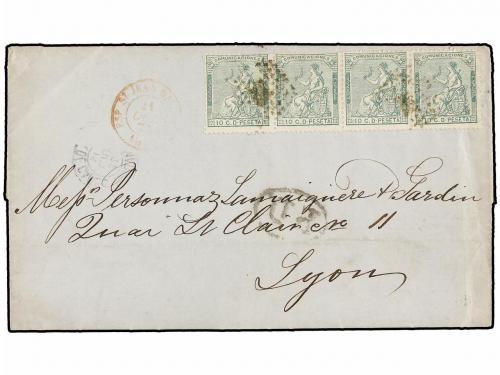 COMUNICACIONES COMUNICACIONES COMUNICACIONES COMUNICACIONES
10 C. D PESETA 10 C. D PESETA 10 C. D PESETA 10 C. D PESETA
21
Messrs Personnaz Lamaignère & Gardin
Quai St Clair No 11
Lyon